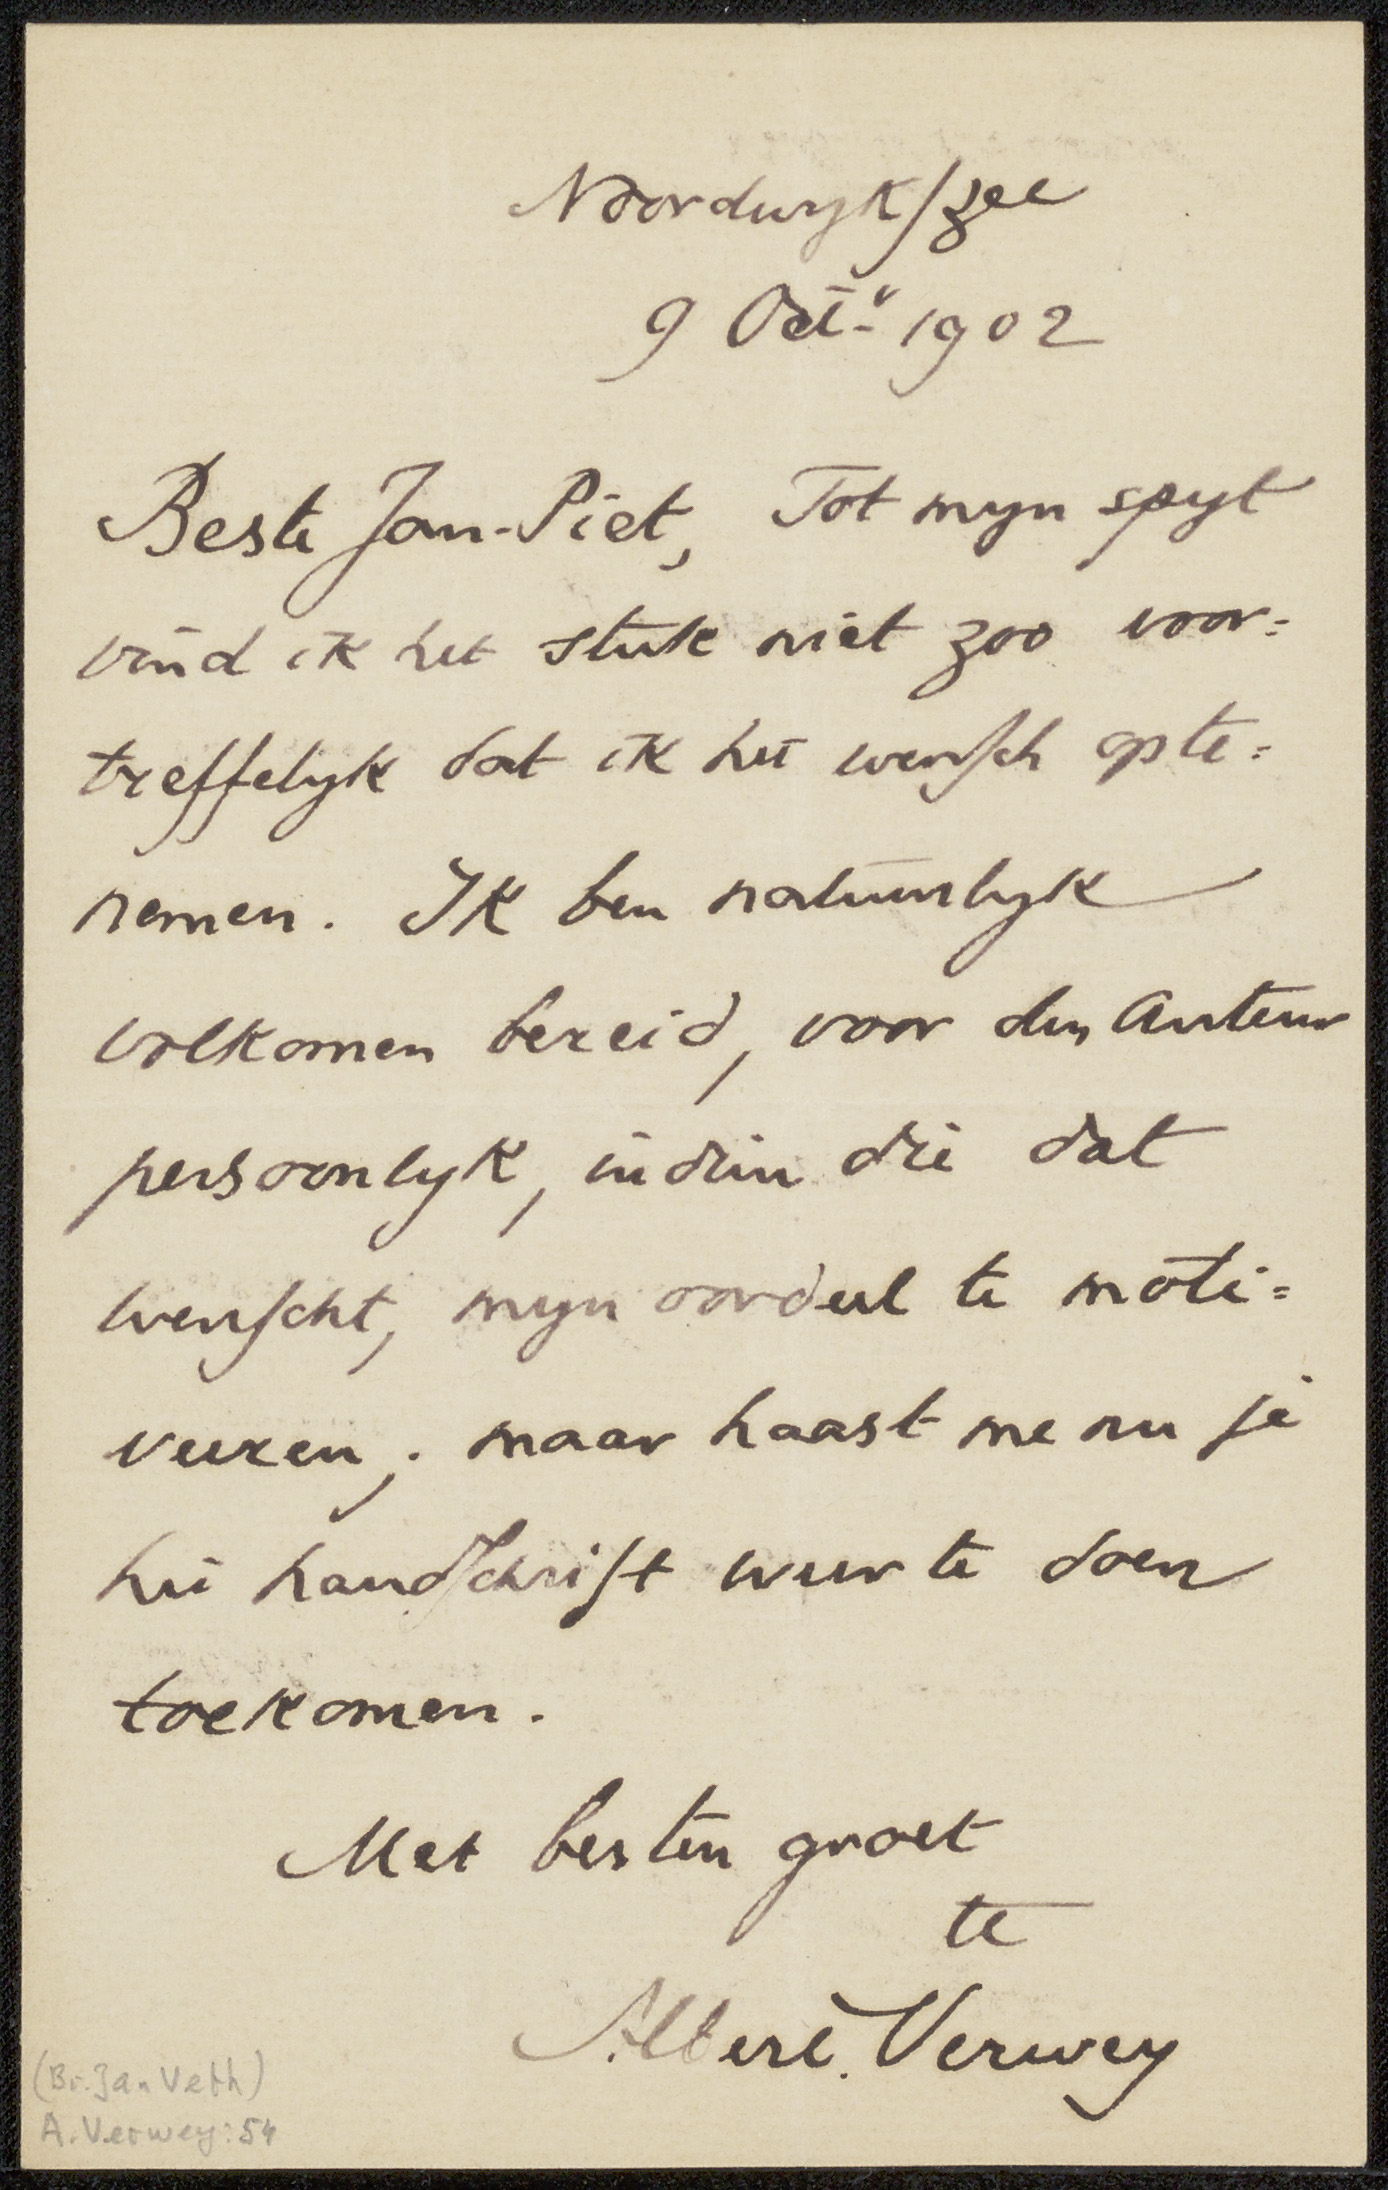 Noordwyk/zee
9 Oct.r 1902
Beste Jan-Piet, Tot myn spyt
vind ik het stuk niet zoo voor=
treffelyk dat ik het wensch opte=
nemen. Ik ben natuurlyk
volkomen bereid, voor den Auteur
persoonlyk, indien die dat
wenscht, myn oordeel te moti=
veeren; maar haast me nu je
het handschrift weer te doen
toekomen.
Met besten groet
te
Albert Verwey
(Br. Jan Veth)
A. Verwey: 54